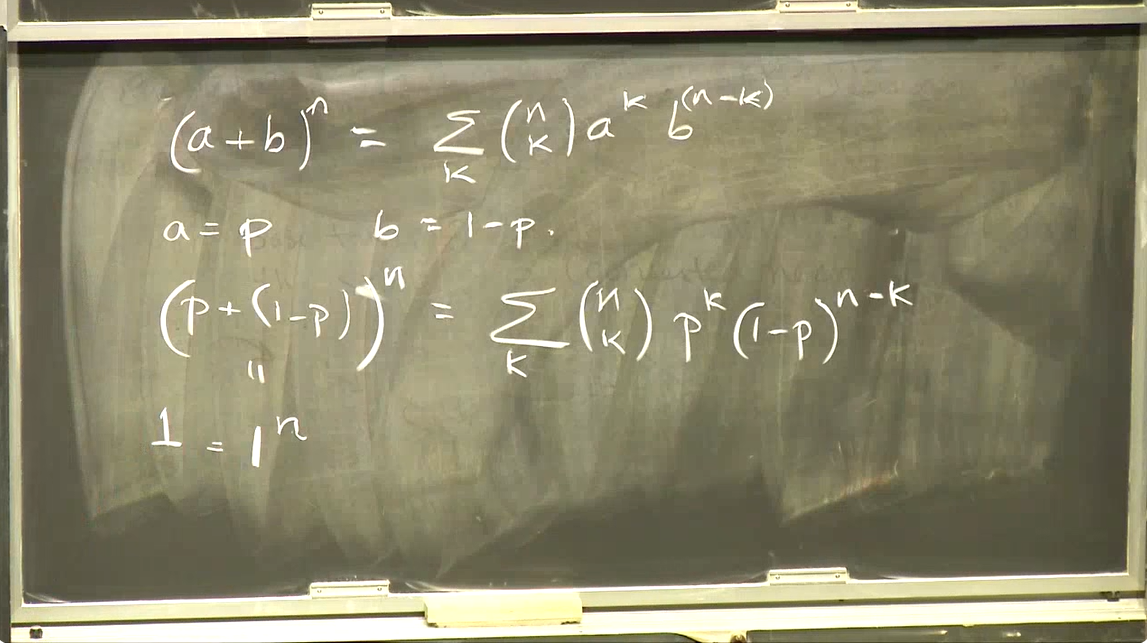 (a+b)^n = ∑_k (n k) a^k b^(n-k)
a = p b = 1-p.
(p+(1-p))^n = ∑_k (n k) p^k (1-p)^{n-k}
"
1 = 1^n